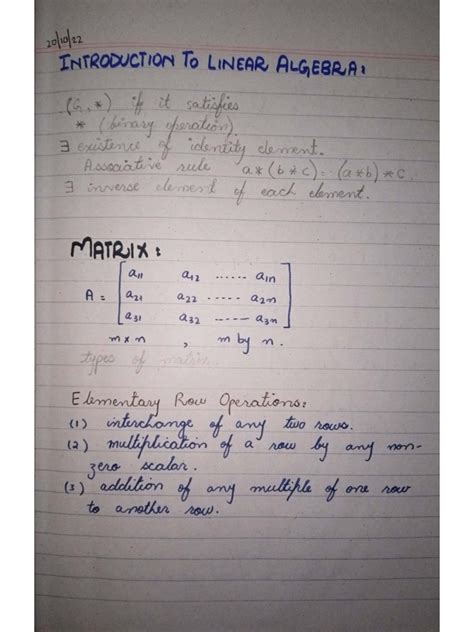 20/10/22
INTRODUCTION TO LINEAR ALGEBRA:
(G, *) if it satisfies
* (binary operation).
∃ existence of identity element.
Associative rule a*(b*c) = (a*b)*c.
∃ inverse element of each element.
MATRIX:
A = [ a11 a12 ...... a1n
a21 a22 ..... a2n
a31 a32 ----- a3n ]
m×n , m by n.
types of matrix...
Elementary Row Operations:
(1) interchange of any two rows.
(2) multiplication of a row by any non-
zero scalar.
(3) addition of any multiple of one row
to another row.